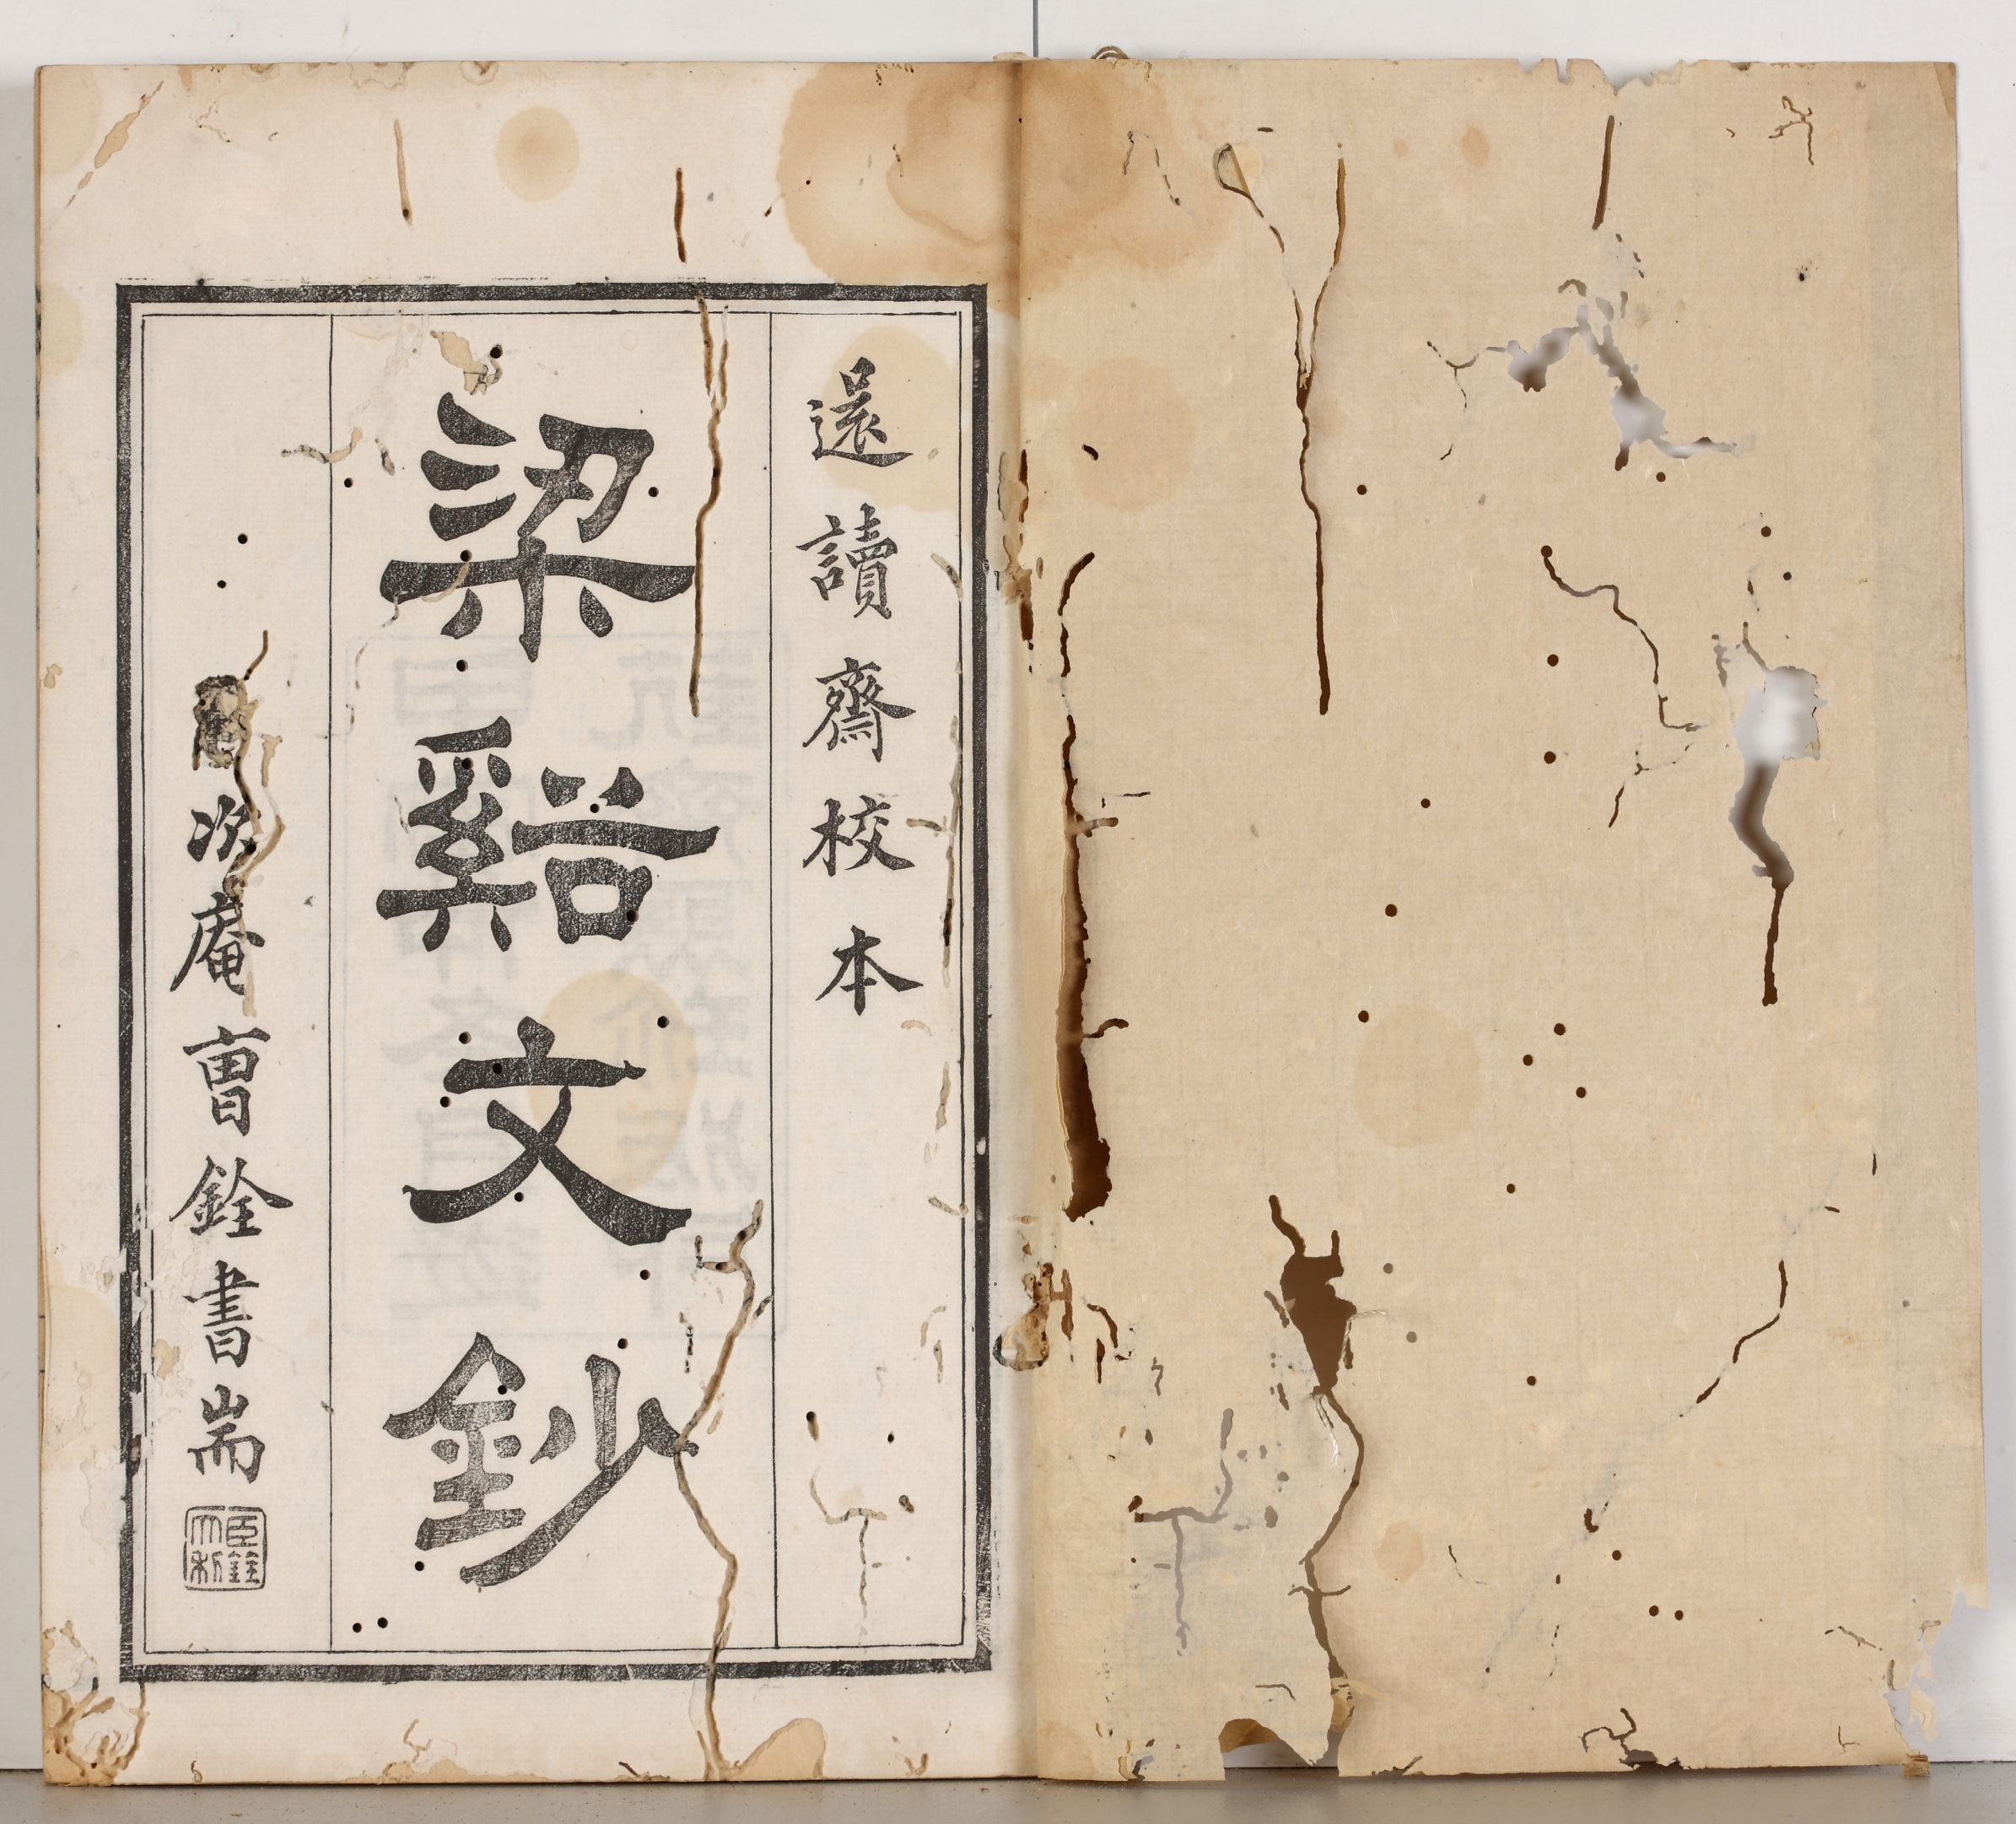 還讀齋校本
梁谿文鈔
次庵曹銓書耑
臣銓